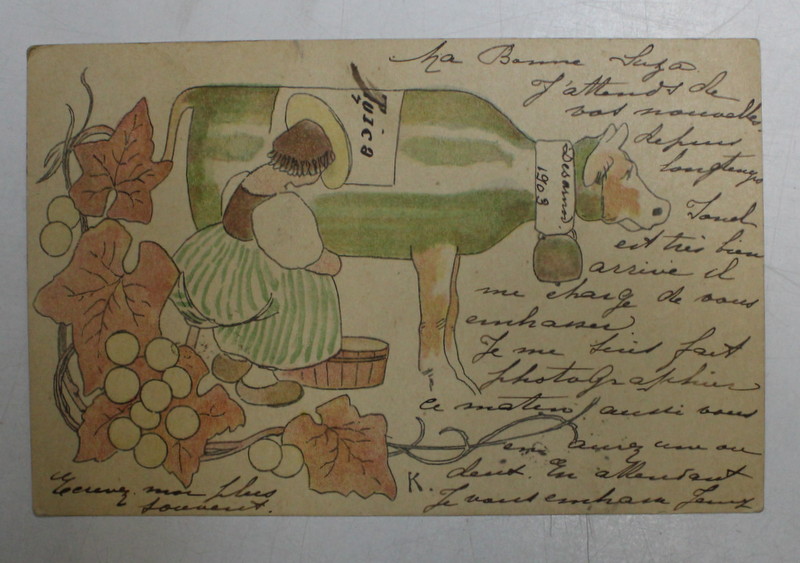 Ma Bonne Suza
J'attends de
vos nouvelles
depuis
longtemps
est très bien
arrivé il
me charge de vous
embrasser
Je me suis fait
photographier
ce matin aussi vous
en aurez une ou
deux. En attendant
Je vous embrasse
Ecrivez moi plus
souvent.
Tuica
1903
K.